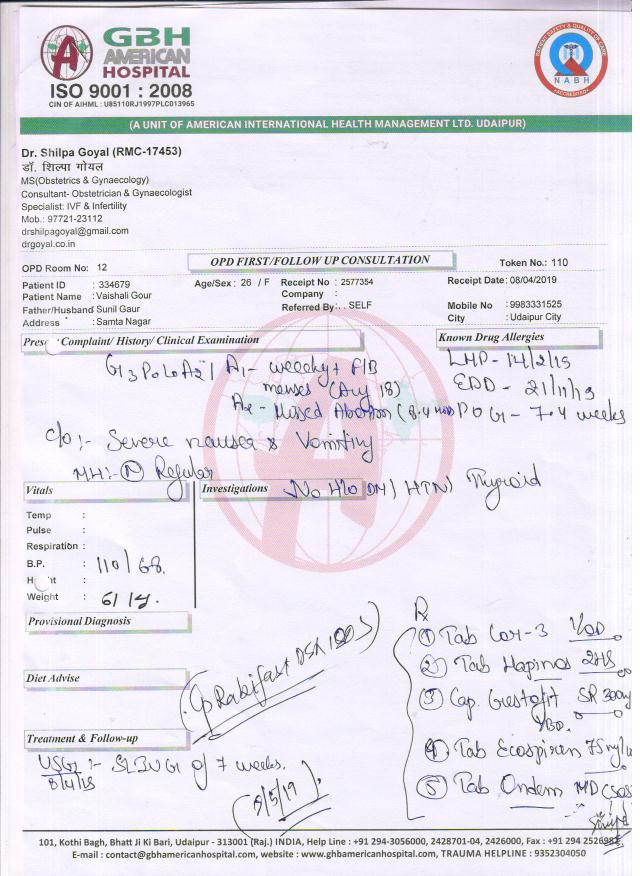 GBH
AMERICAN
HOSPITAL
ISO 9001 : 2008
CIN OF AIHML : U85110RJ1997PLC013965
PATIENT SAFETY & QUALITY OF CARE
NABH
ACCREDITED
(A UNIT OF AMERICAN INTERNATIONAL HEALTH MANAGEMENT LTD. UDAIPUR)
Dr. Shilpa Goyal (RMC-17453)
डॉ. शिल्पा गोयल
MS(Obstetrics & Gynaecology)
Consultant- Obstetrician & Gynaecologist
Specialist: IVF & Infertility
Mob.: 97721-23112
drshilpagoyal@gmail.com
drgoyal.co.in
OPD Room No: 12
OPD FIRST/FOLLOW UP CONSULTATION
Token No.: 110
Patient ID : 334679 Age/Sex : 26 / F Receipt No : 2577354 Receipt Date : 08/04/2019
Patient Name : Vaishali Gour Company :
Father/Husband Sunil Gaur Referred By : . SELF Mobile No : 9983331525
Address : Samta Nagar City : Udaipur City
Complaint/ History/ Clinical Examination
Known Drug Allergies
G3P0L0A2 / A1 - F/B LMP - 14/2/19
menses (Aug 18) EDD - 21/11/19
A2 - Missed Abortion POG - 7.4 weeks
c/o :- Severe nausea & Vomiting
MH:- N Regular
Vitals
Investigations
No H/o DM / HTN / Thyroid
Temp :
Pulse :
Respiration :
B.P. : 110/68
Weight : 61
Provisional Diagnosis
Rx
① Tab Cor-3 1/OD
② Tab 2HS
Cp Rabifast DSR
Diet Advise
③ Cap. Gestofit SR 300mg
BD.
Treatment & Follow-up
④ Tab Ecospirin 75mg
USG :- SLIUG of 7 weeks.
8/4/19
⑤ Tab Ondem MD (SOS
8/5/19
101, Kothi Bagh, Bhatt Ji Ki Bari, Udaipur - 313001 (Raj.) INDIA, Help Line : +91 294-3056000, 2428701-04, 2426000, Fax : +91 294
E-mail : contact@gbhamericanhospital.com, website : www.gbhamericanhospital.com, TRAUMA HELPLINE : 9352304050